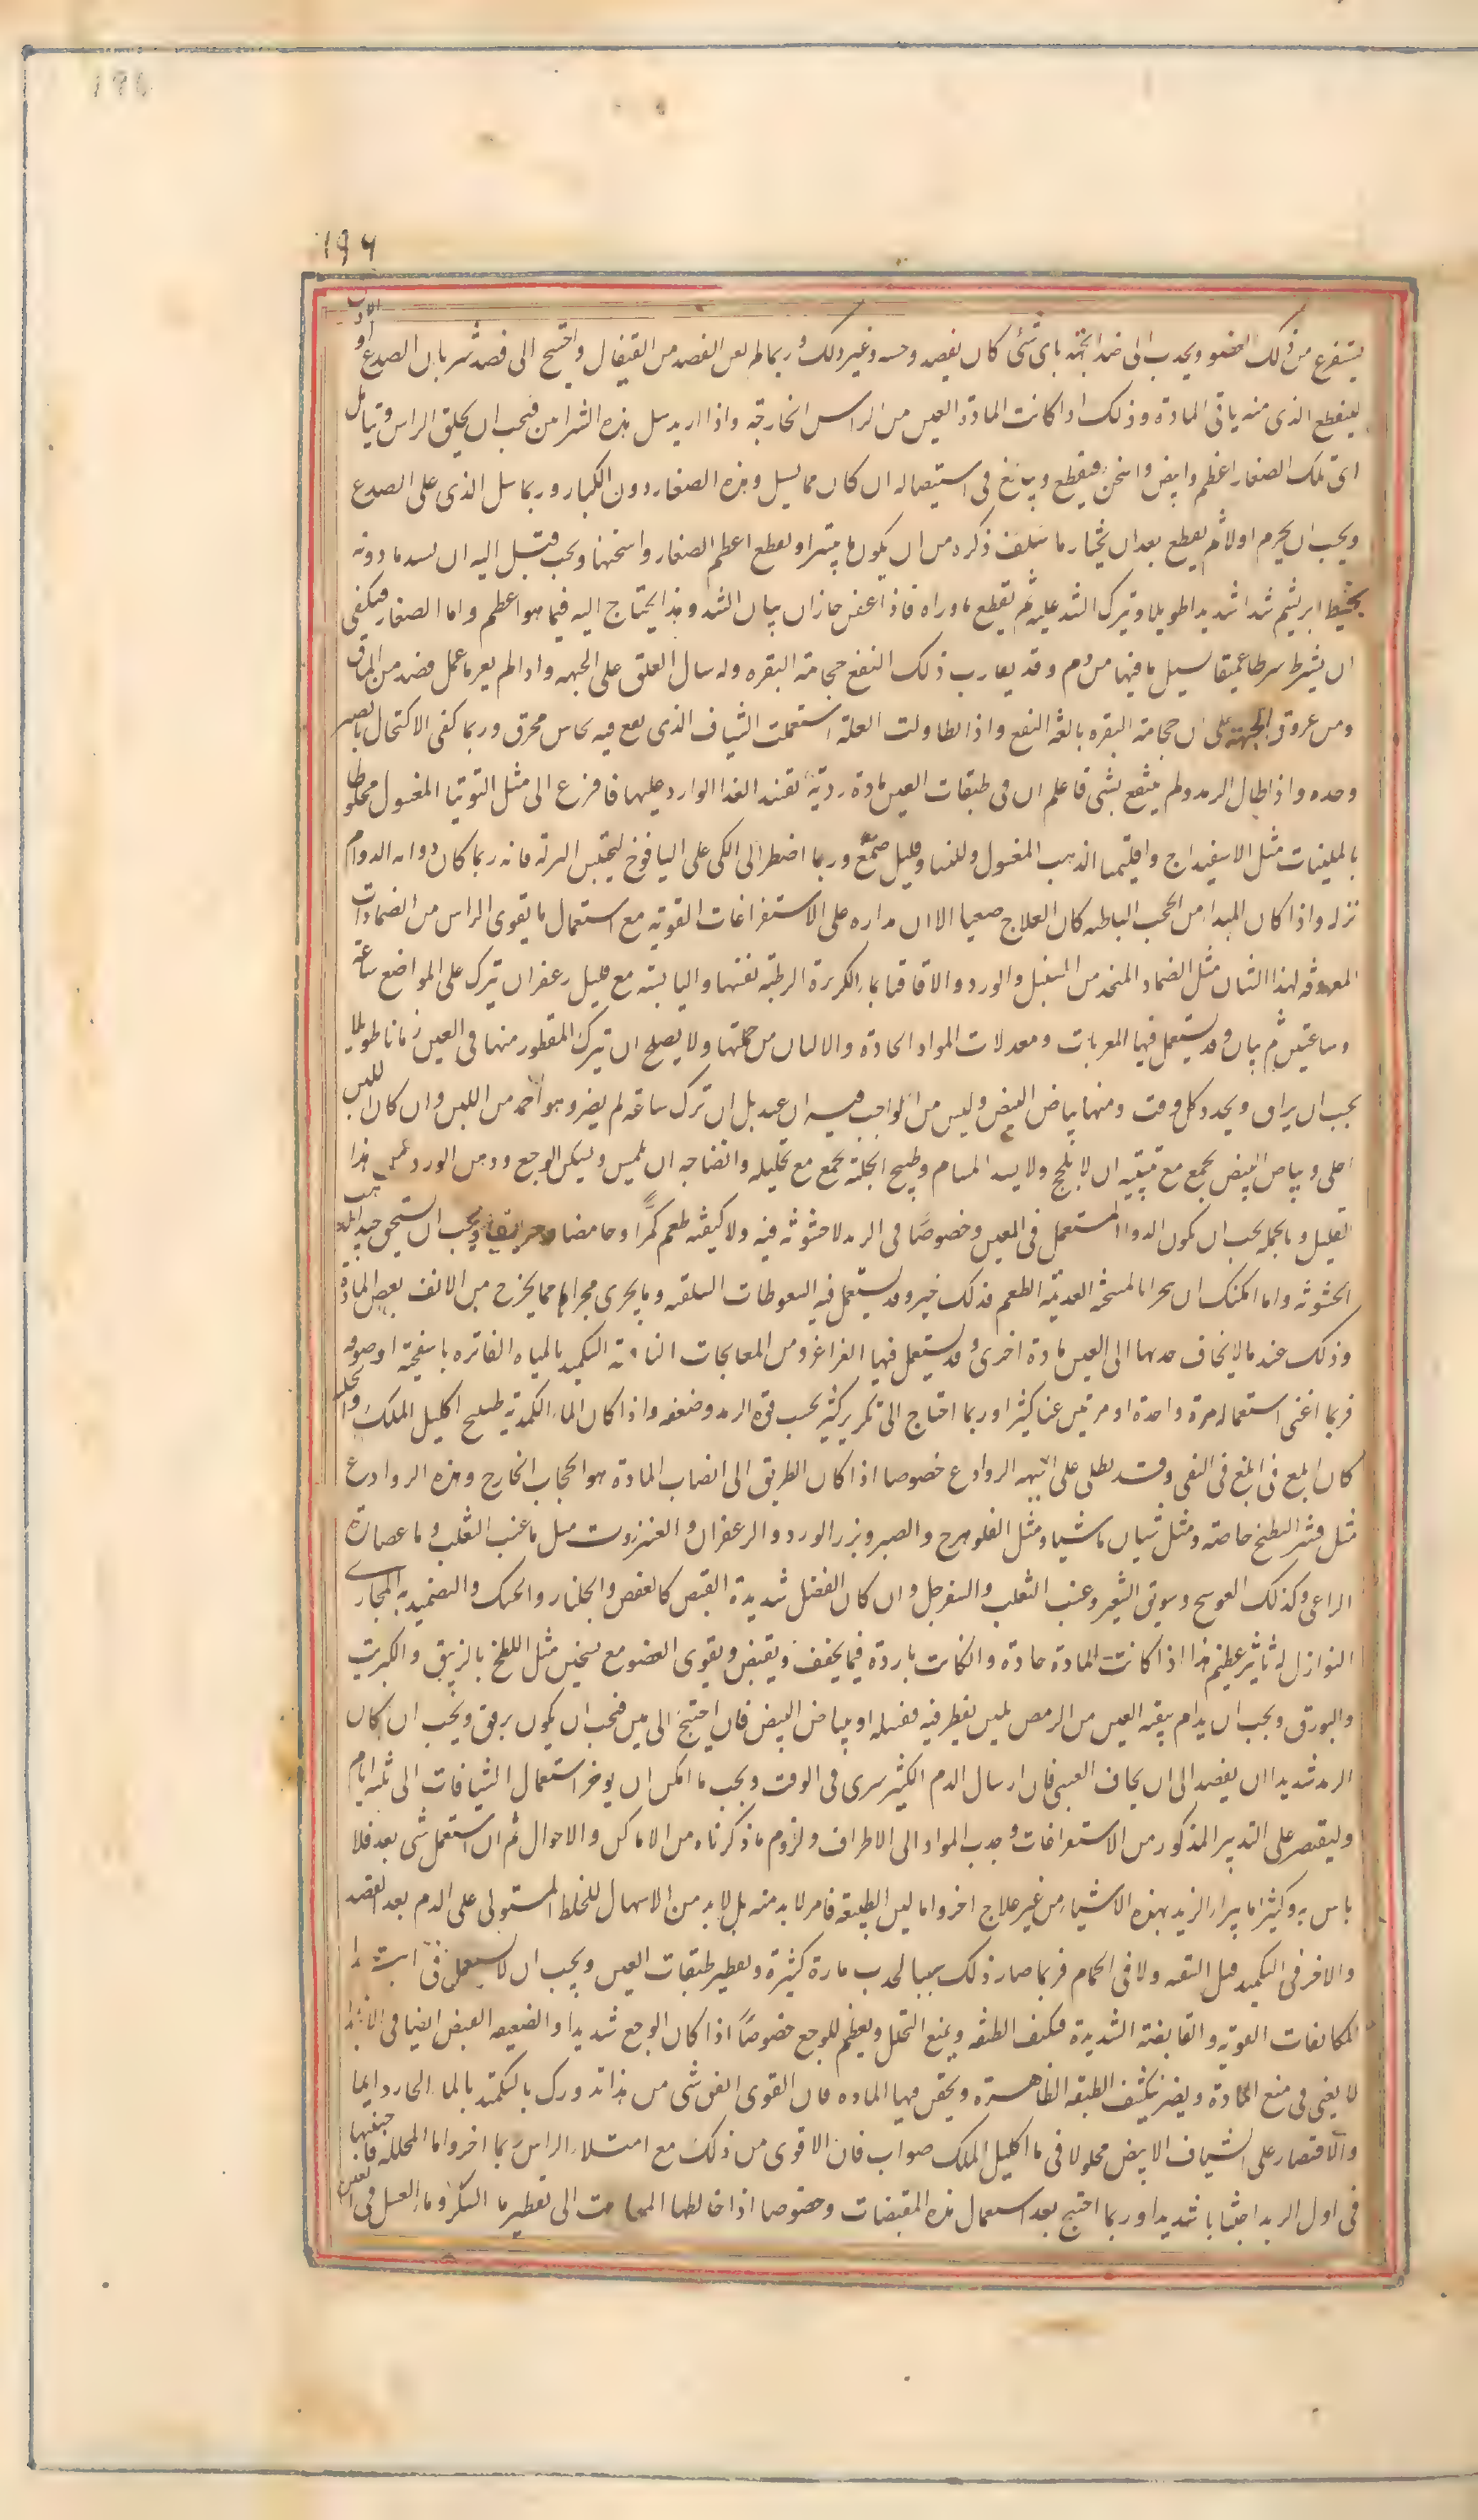 196
يستفرغ من ذلك العضو ويجذب الى ضد الجهة باى شئ كان بفصد وحقنه وغير ذلك وربما لم يغن الفصد من القيفال واحتيج الى فصد شريان الصدغ او الاذن
لينقطع الذى منه ياتى المادة وذلك اذا كانت المادة العين من الراس الخارجة واذا اريد سل هذه الشرايين فيجب ان يحلق الراس ويتامل
اى تلك الصغار اعظم وانبض واسخن فيقطع ويبالغ فى استيصاله ان كان مما يسل وهذه الصغار دون الكبار وربما سل الذى على الصدغ
ويجب ان يخرم اولا ثم يقطع بعد ان يختار ما سلف ذكره من ان يكون ما يبتر او يقطع اعظم الصغار واسخنها ويجب قبل البتر ان يشد ما دونه
بخيط ابريشم شدا شديدا طويلا ويترك الشد عليه ثم يقطع ما وراه فاذا عفن جاز ان يبان الشد وهذا يحتاج اليه فيما هو اعظم واما الصغار فيكفى
ان يشرط شرطا عميقا ليسيل ما فيها من دم وقد يقارب ذلك النفع حجامة النقرة وارسال العلق على الجبهة واذا لم يغن ما عمل فصد من الماق
ومن عروق الجبهة على ان حجامة النقرة بالغة النفع واذا تطاولت العلة استعملت الشياف الذى يقع فيه نحاس محرق وربما كفى الاكتحال بالصبر
وحده واذا طال الرمد ولم ينتفع بشى فاعلم ان فى طبقات العين مادة ردية تفسد الغذا الوارد عليها فافزع الى مثل التوتيا المغسول مخلوطا
بالملينات مثل الاسفيداج واقليميا الذهب المغسول والنشا وقليل صمغ وربما اضطر الى الكى على اليافوخ ليحتبس النزلة فانه ربما كان دوامه لدوام
نزلة واذا كان المبدا من الحجب الباطنة كان العلاج صعبا الا ان مداره على الاستفراغات القوية مع استعمال ما يقوى الراس من الضمادات
المعروفة لهذا الشان مثل الضماد المتخذ من السنبل والورد والاقاقيا بماء الكزبرة الرطبة نفسها واليابسة مع قليل زعفران يترك على المواضع ساعة
وساعتين ثم يبان وقد يستعمل فيها المغريات ومعدلات المواد الحادة والالبان من جملتها ولا يصلح ان يترك المقطور منها فى العين زمانا طويلا
يجب ان يراق ويجدد كل وقت ومنها بياض البيض وليس من الواجب فيه ان يجدد بل ان ترك ساعة لم يضر وهو احمد من اللبن وان كان اللبن
اجلى وبياض البيض يجمع مع تنقيته ان لا يلحج ولا يسد المسام وطبيخ الحلبة يجمع مع تحليله وانضاجه ان يملس ويسكن الوجع ودهن الورد من هذا
القبيل وبالجملة يجب ان يكون الدواء المستعمل فى العين وخصوصًا فى الرمد لا خشونة فيه ولا كيفية طعم كمر او حامض او حريف ويجب ان يسحق جيدا ليذهب
الخشونة واما امكنك ان تجتزى بالمسخنة العديمة الطعم فذلك خير وقد يستعمل فيه السعوطات السلقية وما يجرى مجراها مما يخرج من الانف بعض المادة
وذلك عند ما لا يخاف جذبها الى العين مادة اخرى وقد يستعمل فيها الغراغر ومن المعالجات النافعة التكميد بالمياه الفاترة باسفنجة او صوفة
فربما اغنى استعماله مرة واحدة او مرتين غنا كثيرا وربما احتاج الى تكرير كثير بحسب قوة الرمد وضعفه واذا كان الماء المكمد به طبيخ اكليل الملك والحلبة
كان ابلغ فى النفع وقد يطلى على الجبهة الروادع خصوصا اذا كان الطريق الى انصباب المادة هو الحجاب الخارج وهذه الروادع
مثل قشر البطيخ خاصة ومثل شياف ماميثا ومثل الفيلزهرج والصبر وبزر الورد والزعفران والعنزروت مثل ما عنب الثعلب وما عصاره
الراعى وكذلك العوسج وسويق الشعير وعنب الثعلب والسفرجل وان كان الفضل شديدة القبض كالعفص والجلنار والحسك والتضميد به لمجارى
النوازل له تاثير عظيم هذا اذا كانت المادة حادة وان كانت باردة فيما يجفف ويقبض ويقوى العضو مع تسخين مثل اللطخ بالزيبق والكبريت
والبورق ويجب ان يدام تنقية العين من الرمص بلبن يقطر فيه فيغسله او بياض البيض فان احتيج الى مس فيجب ان يكون برفق ويجب ان كان
الرمد شديدا ان يفصد الى ان يخاف الغشى فان ارسال الدم الكثير يبرى فى الوقت ويجب ما امكن ان يوخر استعمال الشيافات الى ثلثة ايام
وليقتصر على التدبير المذكور من الاستفراغات وجذب المواد الى الاطراف ولزوم ما ذكرناه من الاماكن والاحوال ثم ان استعمل شى بعد فلا
باس به وكثيرا ما يبرا الرمد بهذه الاشياء من غير علاج اخر واما لين الطبيعة فامر لا بد منه بل لا بد من الاسهال للخلط المستولى على الدم بعد الفصد
ولا خير فى التكميد قبل التنقية ولا فى الحمام فربما صار ذلك سببا لجذب مادة كثيرة وتقطير طبقات العين ويجب ان لا يستعمل فى ابتدا
المكاثفات القوية والقابضة الشديدة فيكثف الطبقة ويمنع التحلل ويعظم الوجع خصوصًا اذا كان الوجع شديدا والضعيفة القبض ايضا فى الابتدا
لا يغنى فى منع المادة ويضر بتكثيف الطبقة الظاهرة ويحقن فيها المادة فان اتفق شى من هذا تدورك بالتكميد بالماء الحار دايما
والاقتصار على الشياف الابيض محلولا فى ما اكليل الملك صواب فان الاقوى من ذلك مع امتلاء الراس ربما اضر واما المحللة فاجتنبها
فى اول الرمد اجتنابا شديدا وربما احتيج بعد استعمال هذه المقبضات وخصوصا اذا خالطها المخدرات الى تقطير ما السكر وما العسل فى العين